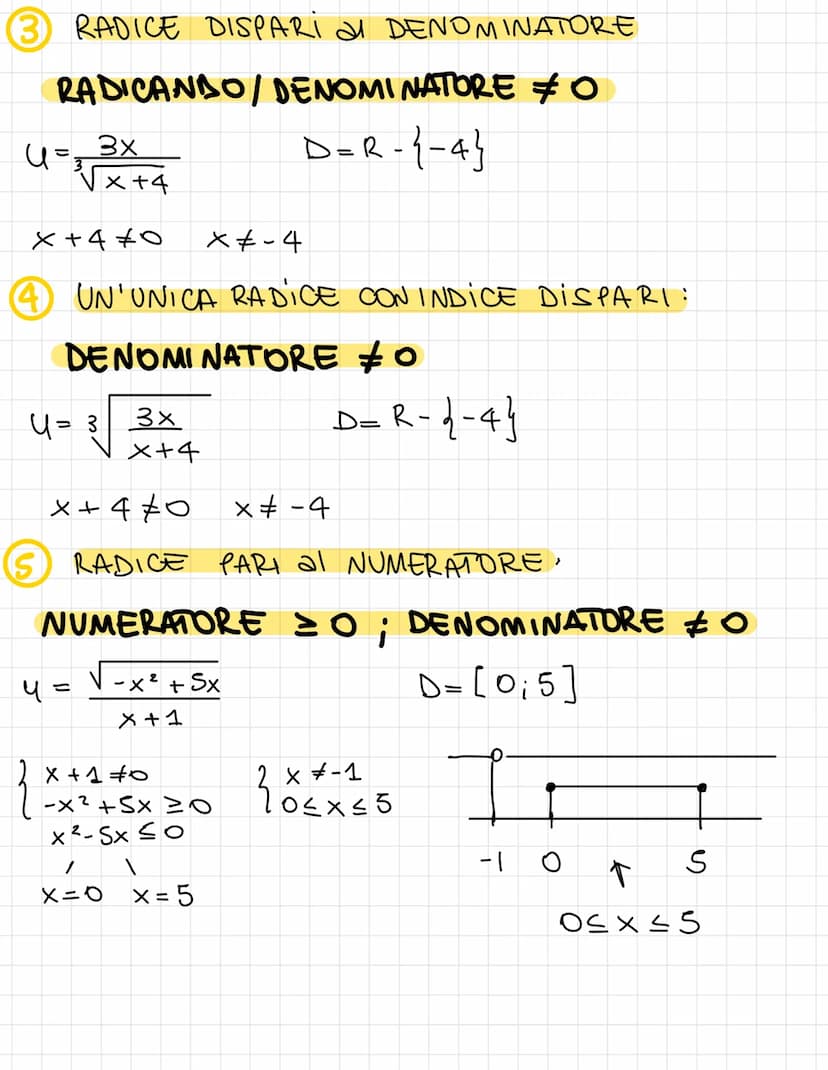 ③ RADICE DISPARI al DENOMINATORE
RADICANDO/DENOMINATORE ≠ 0
y = 3x / ∛(x+4)    D = R - {-4}
x + 4 ≠ 0    x ≠ -4
④ UN'UNICA RADICE CON INDICE DISPARI:
DENOMINATORE ≠ 0
y = ∛(3x / (x+4))    D = R - {-4}
x + 4 ≠ 0    x ≠ -4
⑤ RADICE PARI al NUMERATORE,
NUMERATORE ≥ 0 ; DENOMINATORE ≠ 0
y = √(-x² + 5x) / (x+1)    D = [0;5]
{ x + 1 ≠ 0    { x ≠ -1
-x² + 5x ≥ 0    0 ≤ x ≤ 5
x² - 5x ≤ 0
x = 0    x = 5
-1    0    ↑    5
0 ≤ x ≤ 5